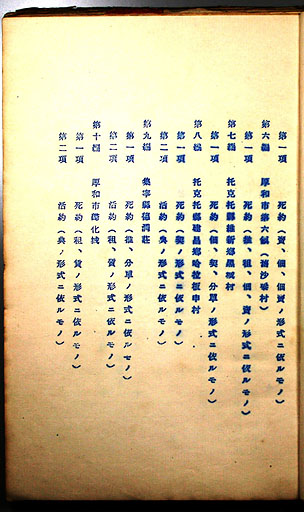 第一項 死約(賣、佃、ノ形式ニ依ルモノ)
第六編 厚和市第六鎮(沙村)
第一項 死約(租、佃、賣ノ形式ニ依ルモノ)
第七編 托克托縣維新鄉黑城村
第一項 死約(佃、契、分單ノ形式ニ依ルモノ)
第八編 托克托縣建昌鄉哈拉板申村
第一項 死約(契ノ形式ニ依ルモノ)
第二項 活約(典ノ形式ニ依ルモノ)
第九編 集寧縣莊
第一項 死約(推、分單ノ形式ニ依ルモノ)
第二項 活約(租、ノ形式ニ依ルモノ)
第十編 厚和市歸化城
第一項 死約(租、ノ形式ニ依ルモノ)
第二項 活約(典ノ形式ニ依ルモノ)